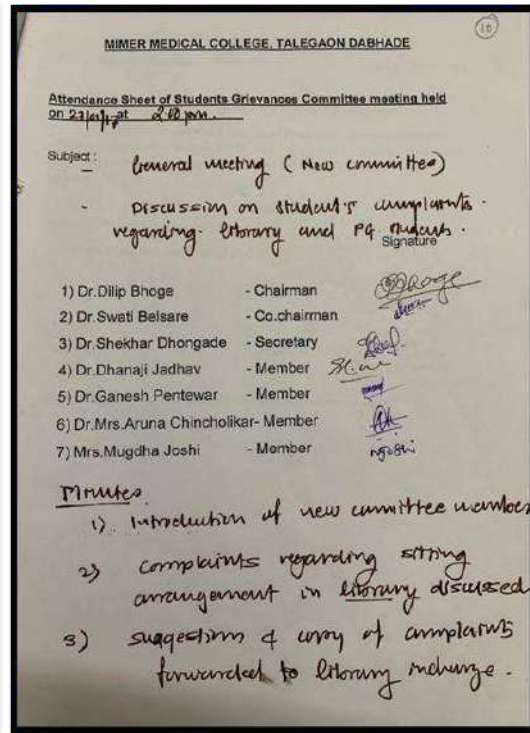 10
MIMER MEDICAL COLLEGE, TALEGAON DABHADE
Attendance Sheet of Students Grievances Committee meeting held
on at 2.00 pm.
Subject :
- General meeting (New committee)
- Discussion on student's complaints
regarding library and PG students.
Signature
1) Dr.Dilip Bhoge - Chairman
2) Dr.Swati Belsare - Co.chairman
3) Dr.Shekhar Dhongade - Secretary
4) Dr.Dhanaji Jadhav - Member
5) Dr.Ganesh Pentewar - Member
6) Dr.Mrs.Aruna Chincholikar- Member
7) Mrs.Mugdha Joshi - Member
Minutes
1) Introduction of new committee member
2) complaints regarding sitting
arrangement in library discussed
3) suggestion & copy of complaints
forwarded to library incharge.